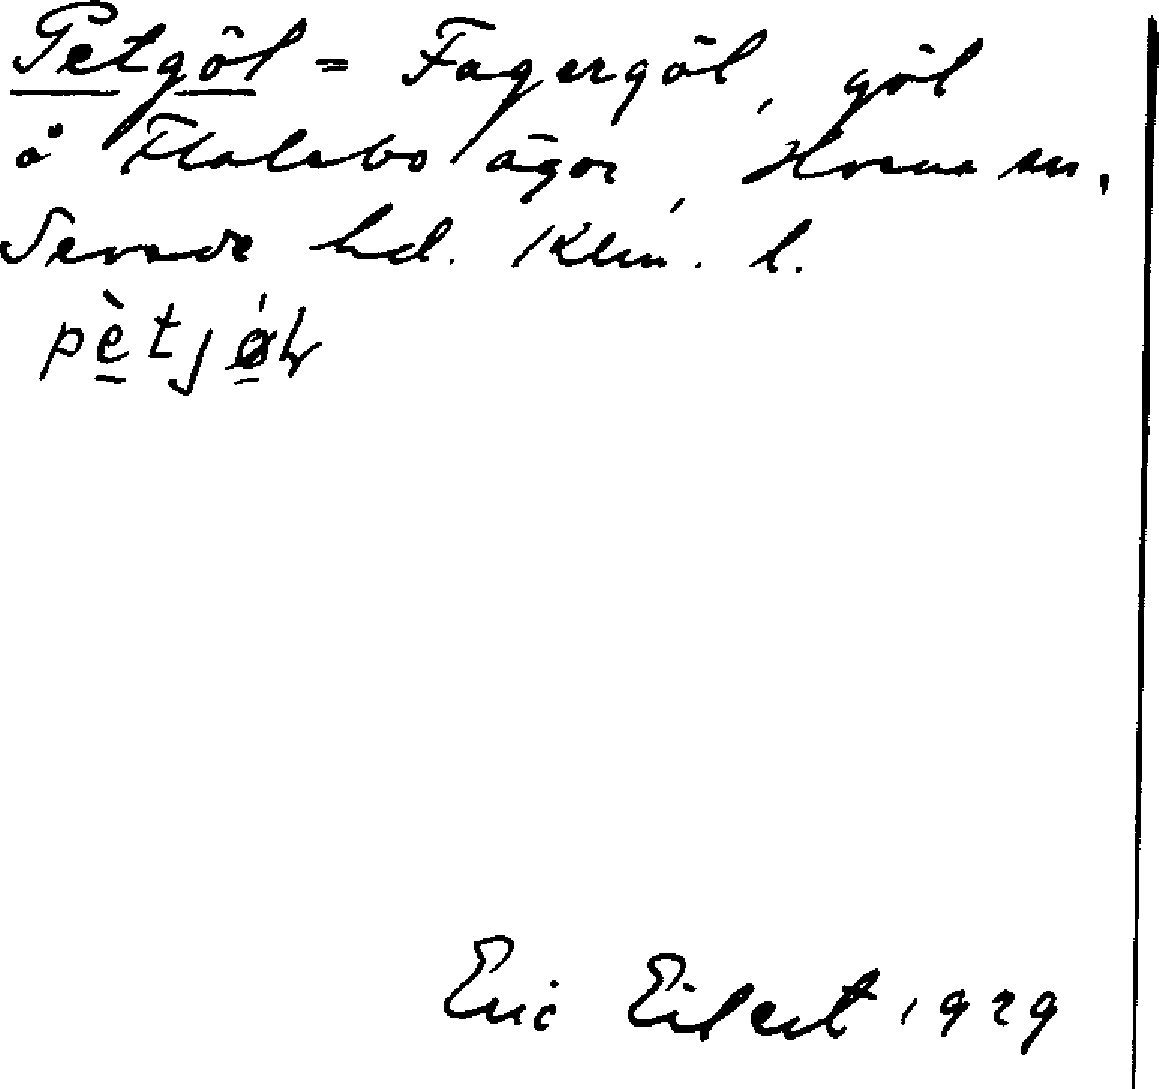 Petgöl = Fagergöl, göl
å Flatebo ägor, Horns sn,
Sevede hd. Klm. l.
pètjø̀ɫ
Eric Eilert 1929